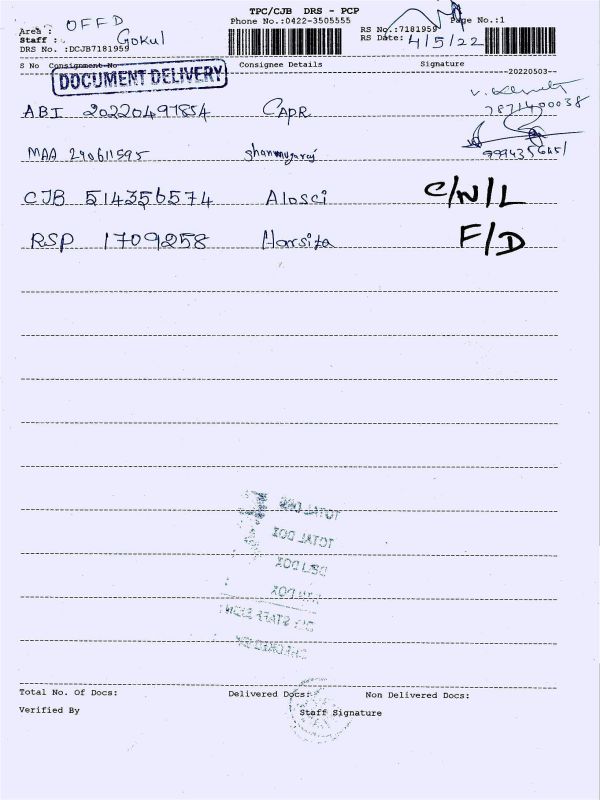 TPC/CJB DRS - PCP
Phone No.:0422-3505555
Page No.:1
Area : OFFD
Staff : Gokul
RS No.:7181959
DRS No. :DCJB7181959
RS Date: 4/5/22
S No Consignment No Consignee Details Signature
--20220503--
DOCUMENT DELIVERY
ABI CAPR
7871400038
MAA 290611595 Shanmugaraj
CJB 514356574 Alosci C/N/L
RSP 1709258 Harsita F/D
TOTAL DRS
TOTAL DOX
DOX
DOX
Total No. Of Docs: Delivered Docs: Non Delivered Docs:
Verified By Staff Signature